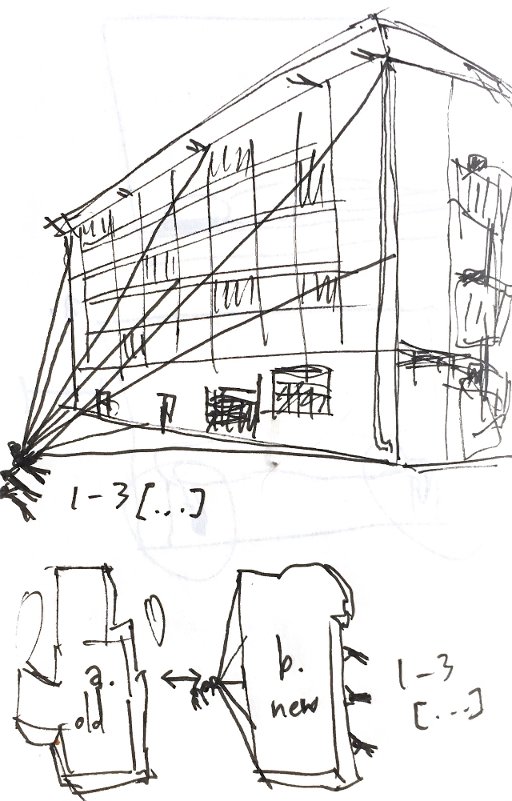 1-3 [...]
a.
old
b.
new
1-3
[...]